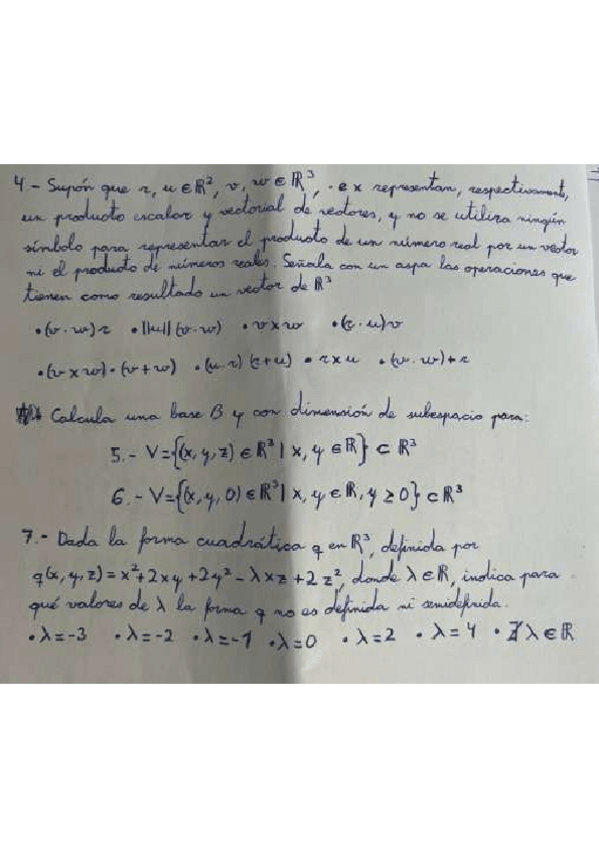 4.- Supón que r, u ∈ ℝ², v, w ∈ ℝ³, · e x representan, respectivamente,
un producto escalar y vectorial de vectores, y no se utiliza ningún
símbolo para representar el producto de un número real por un vector
ni el producto de números reales. Señala con un aspa las operaciones que
tienen como resultado un vector de ℝ³
•(v·w)r •||u||(v·w) •v×w •(r·u)v
•(v×w)·(v+w) •(u·r)(r+u) •r×u •(v·w)+r
Calcula una base B y con dimensión de subespacio para:
5.- V={(x,y,z)∈ℝ³ | x, y ∈ℝ} ⊂ ℝ³
6.- V={(x,y,0)∈ℝ³ | x, y∈ℝ, y≥0} ⊂ ℝ³
7.- Dada la forma cuadrática q en ℝ³, definida por
q(x,y,z)=x²+2xy+2y²-λxz+2z², donde λ∈ℝ, indica para
qué valores de λ la forma q no es definida ni semidefinida.
•λ=-3 •λ=-2 •λ=-1 •λ=0 •λ=2 •λ=4 •∄λ∈ℝ